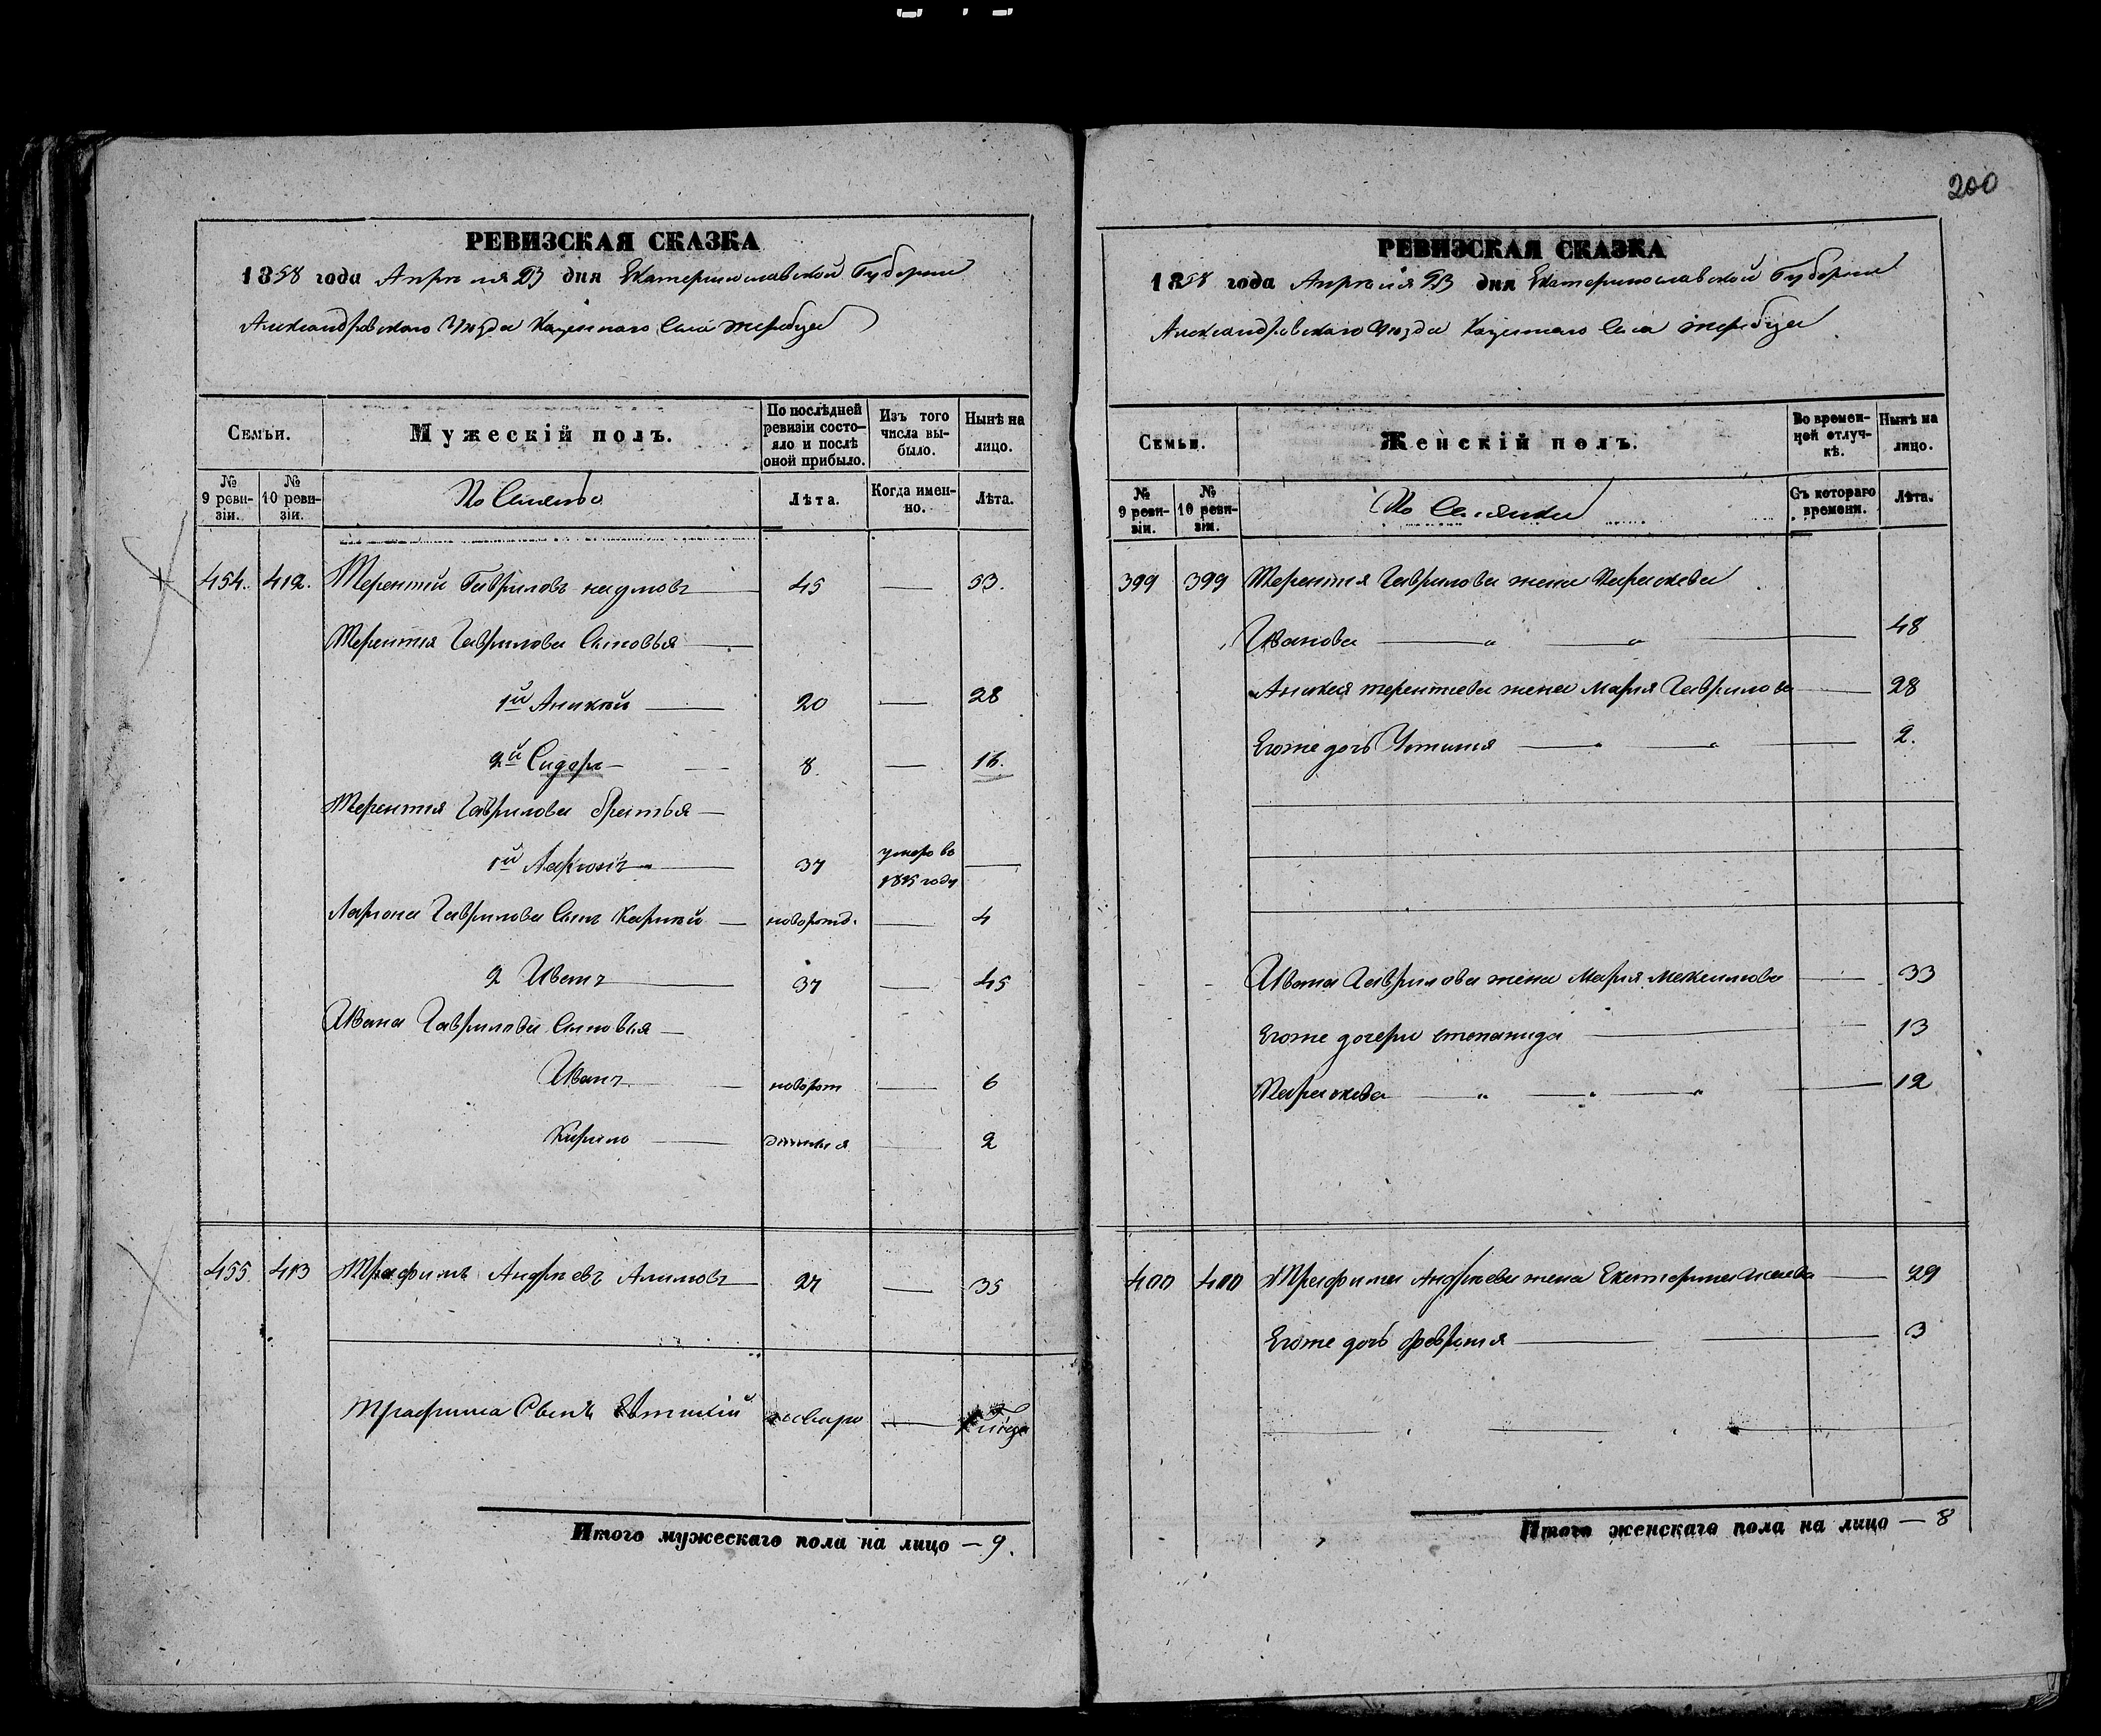 200
РЕВИЗСКАЯ СКАЗКА
1858 года Апрѣля дня Екатеринославской Губернии
Александровского Уѣзда Казенного Села жеребца
Семьи.
Мужескій полъ.
По послѣдней ревизіи состояло и послѣ оной прибыло.
Изъ того числа выбыло.
Нынѣ на лицо.
№ 9 ревизіи.
№ 10 ревизіи.
Лѣта.
Когда именно.
Лѣта.
454. 412. Терентий Гавриловъ наумовъ 45 — 53.
Терентия Гаврилова Сыновья
1й Аникий 20 — 28
2й Сидоръ 8. — 16.
Терентия Гаврилова братья
1й Ларионъ 37 умеръ въ
году
Лариона Гаврилова Сынъ — 4
2 Иванъ 37 — 45
Ивана Гаврилова Сыновья
Иванъ новорож — 6
Кирило — 2
455 413 Трафимъ Андреевъ Алимовъ 27 — 35
Трафима Сынъ
Итого мужескаго пола на лицо — 9.
РЕВИЗСКАЯ СКАЗКА
1858 года Апрѣля дня Екатеринославской Губернии
Александровского Уѣзда Казенного Села жеребца
Семьи.
Женскій полъ.
Во временной отлучкѣ.
Нынѣ на лицо.
№ 9 ревизіи.
№ 10 ревизіи.
Съ котораго времени.
Лѣта.
399 399 Терентия Гаврилова жена Параскева
Иванова — 48
Аникия терентиева жена Мария Гаврилова — 28
Егоже дочь Устиния — 2.
Ивана Гаврилова жена Мария Максимова — 33
Егоже дочери степанида — 13
Параскева — 12
400 400 Трафима Андреева жена Екатерина Исаева — 29
Егоже дочь феврония — 3
Итого женскаго пола на лицо — 8